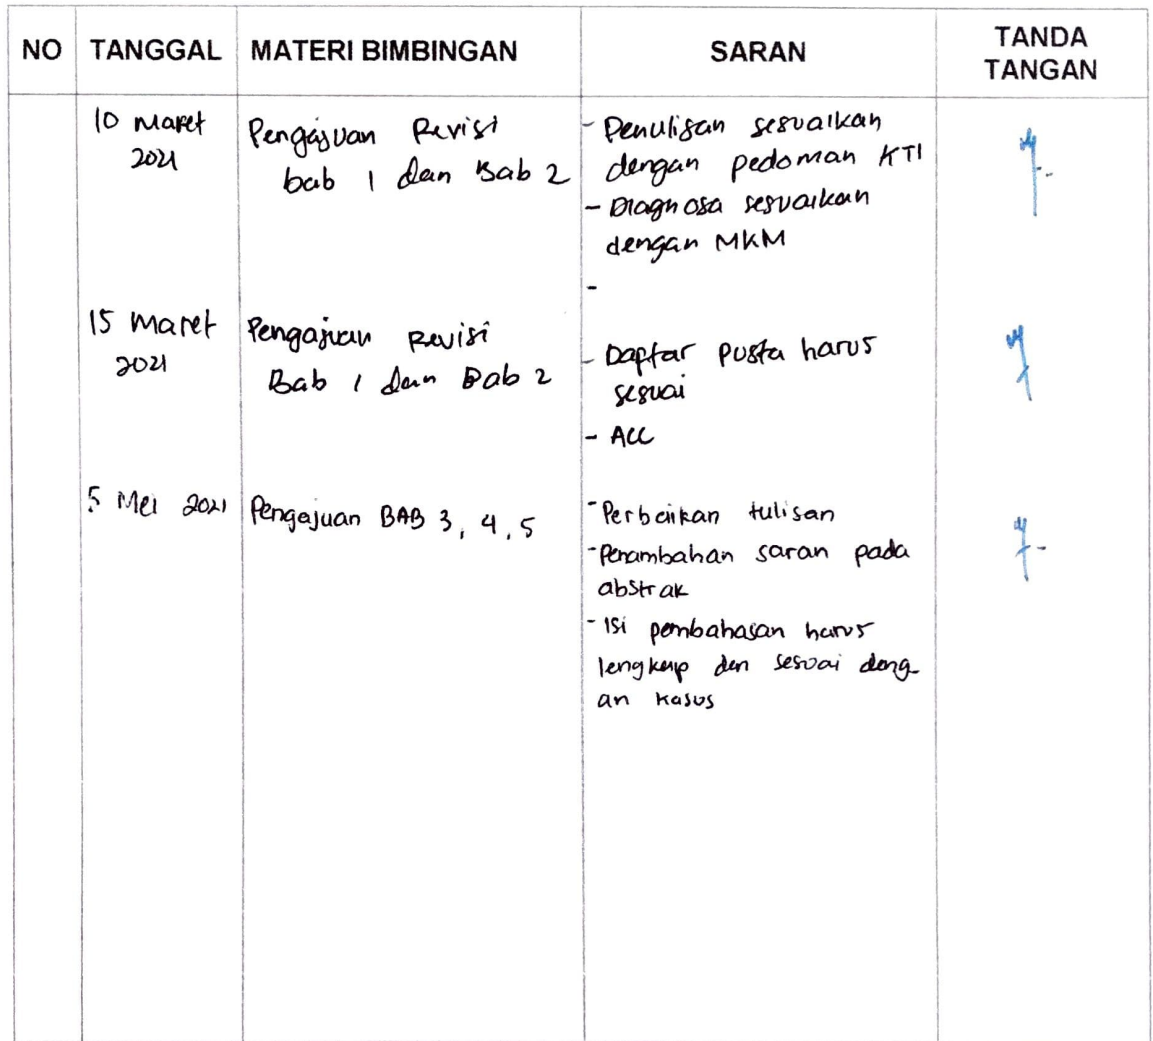 NO TANGGAL MATERI BIMBINGAN SARAN TANDA TANGAN
10 Maret
2021
Pengajuan Revisi
bab 1 dan Bab 2
- Penulisan sesuaikan
dengan pedoman KTI
- Diagnosa sesuaikan
dengan MKM
-
15 Maret
2021
Pengajuan Revisi
Bab 1 dan Bab 2
- Daptar pusta harus
sesuai
- ACC
5 Mei 2021
Pengajuan BAB 3, 4, 5
- Perbaikan tulisan
- Penambahan saran pada
abstrak
- Isi pembahasan harus
lengkap dan sesuai deng
an kasus